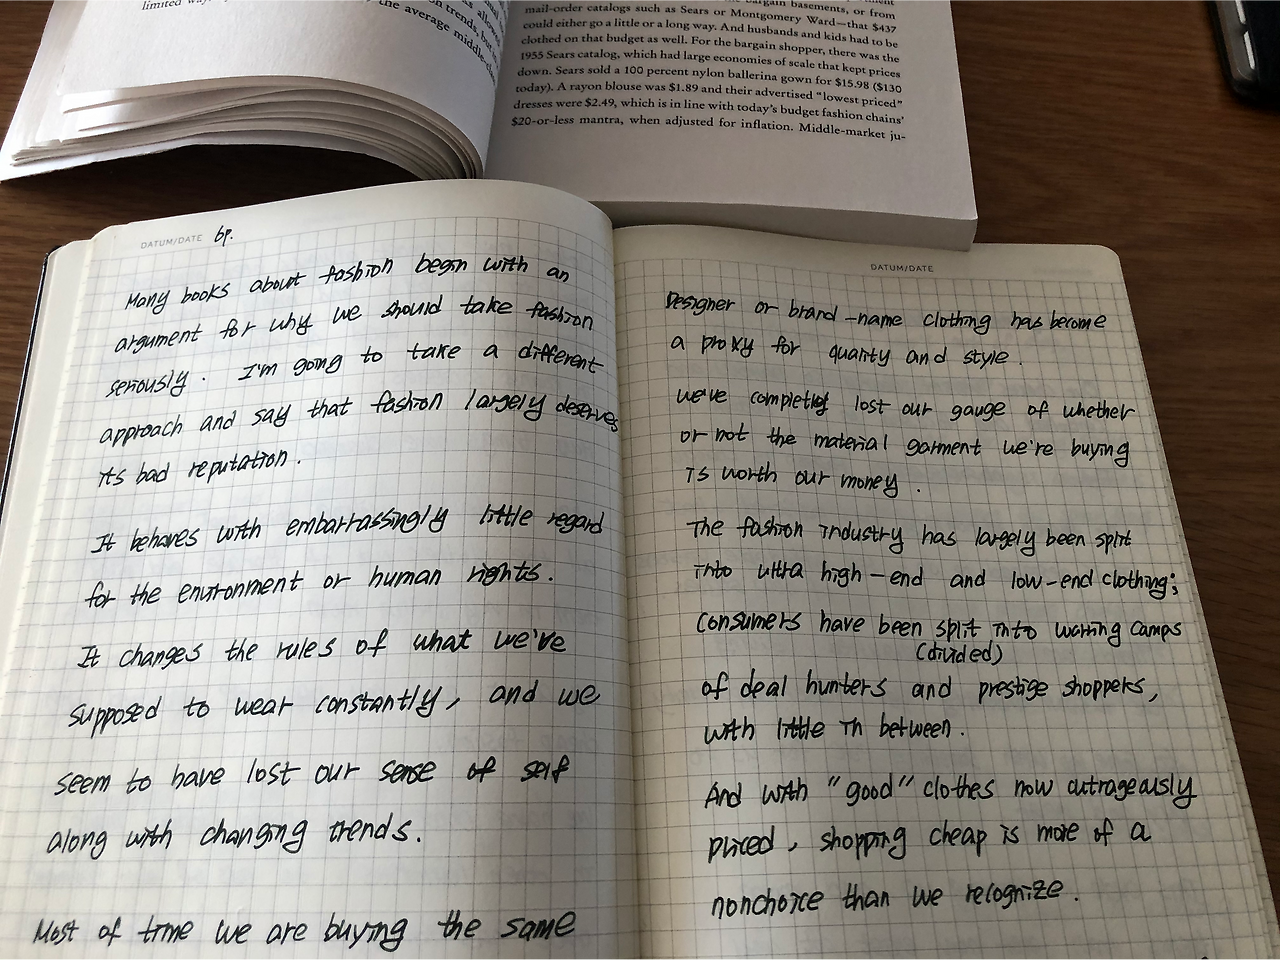 limited way
allowed
trends, but
the average middle-
bargain basements, or from
mail-order catalogs such as Sears or Montgomery Ward—that $437
could either go a little or a long way. And husbands and kids had to be
clothed on that budget as well. For the bargain shopper, there was the
1955 Sears catalog, which had large economies of scale that kept prices
down. Sears sold a 100 percent nylon ballerina gown for $15.98 ($130
today). A rayon blouse was $1.89 and their advertised “lowest priced”
dresses were $2.49, which is in line with today’s budget fashion chains’
$20-or-less mantra, when adjusted for inflation. Middle-market ju-
DATUM/DATE 6p.
Many books about fashion begin with an
argument for why we should take fashion
seriously. I'm going to take a different
approach and say that fashion largely deserves
its bad reputation.
It behaves with embarrassingly little regard
for the environment or human rights.
It changes the rules of what we've
supposed to wear constantly, and we
seem to have lost our sense of self
along with changing trends.
Most of time we are buying the same
DATUM/DATE
Designer or brand-name clothing has become
a proxy for quality and style.
we've completely lost our gauge of whether
or not the material garment we're buying
is worth our money.
The fashion industry has largely been split
into ultra high-end and low-end clothing;
consumers have been split into warring camps
(divided)
of deal hunters and prestige shoppers,
with little in between.
And with "good" clothes now outrageously
priced, shopping cheap is more of a
nonchoice than we recognize.